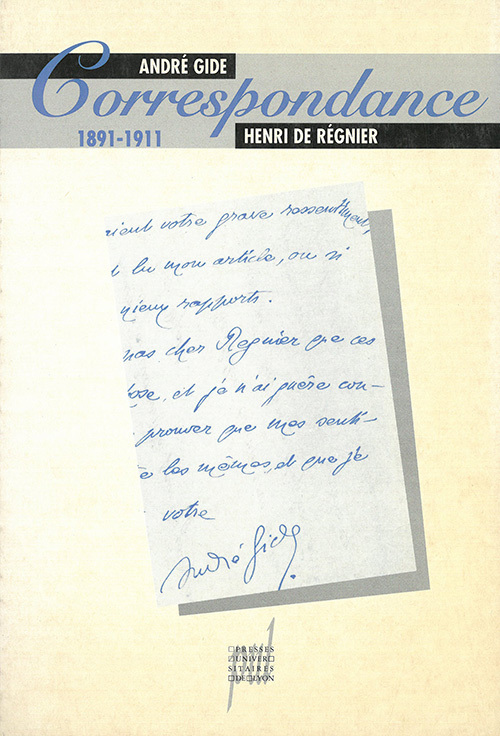 ANDRÉ GIDE
Correspondance
1891-1911
HENRI DE RÉGNIER
rient votre grave ressentiment,
t lu mon article, ou si
nieux rapports.
pas cher Regnier que ces
sse, et je n'ai guère con-
prouver que mes senti-
è les mêmes, et que je
votre
André Gide
pul
PRESSES
UNIVER
SITAIRES
DE LYON